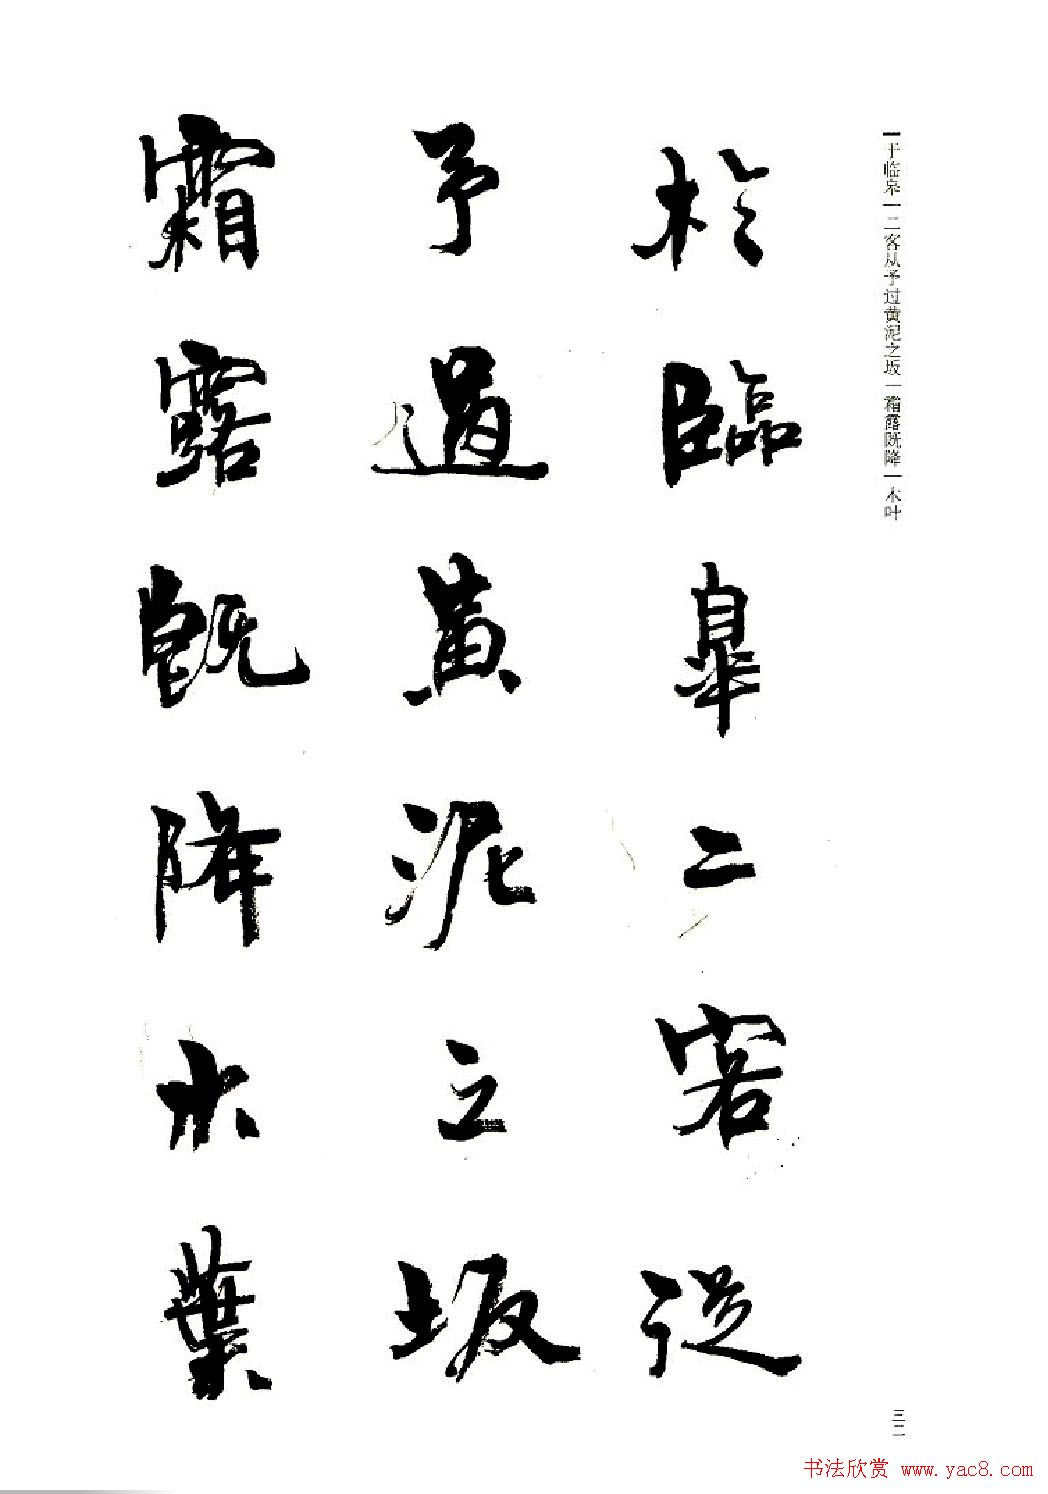 于临皋|二客从予过黄泥之坂|霜露既降|木叶
於臨皋二客從
予過黄泥之坂
霜露既降木葉
三二
书法欣赏 www.yac8.com